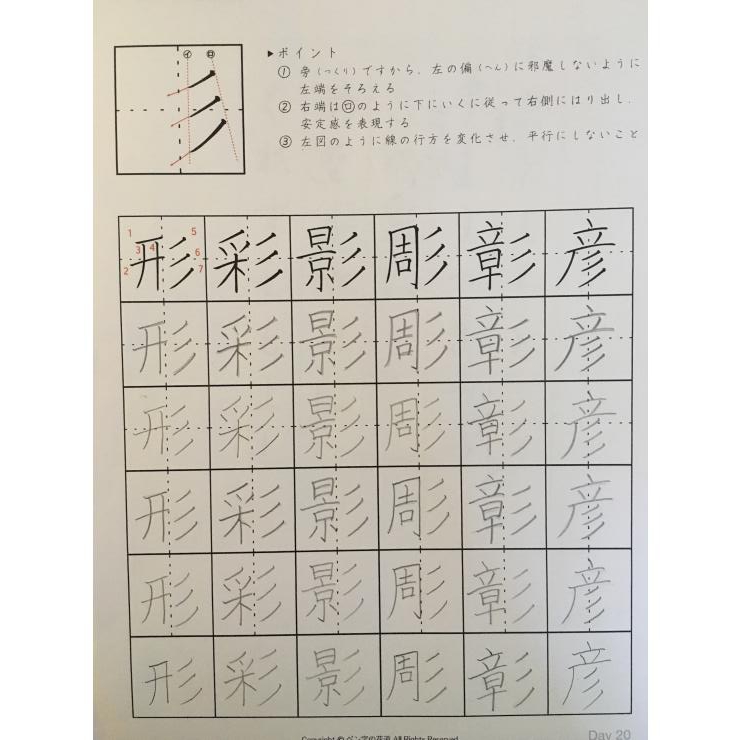 ㋑ ㋺
▶ポイント
① 旁（つくり）ですから、左の偏（へん）に邪魔しないように
左端をそろえる
② 右端は㋺のように下にいくに従って右側にはり出し、
安定感を表現する
③ 左図のように線の行方を変化させ、平行にしないこと
彡
1 2 3 4 5 6 7
形 彩 影 彫 彰 彦
形 彩 影 彫 彰 彦
形 彩 影 彫 彰 彦
形 彩 影 彫 彰 彦
形 彩 影 彫 彰 彦
形 彩 影 彫 彰 彦
Copyright (C) ペン字の花道 All Rights Reserved.
Day 20